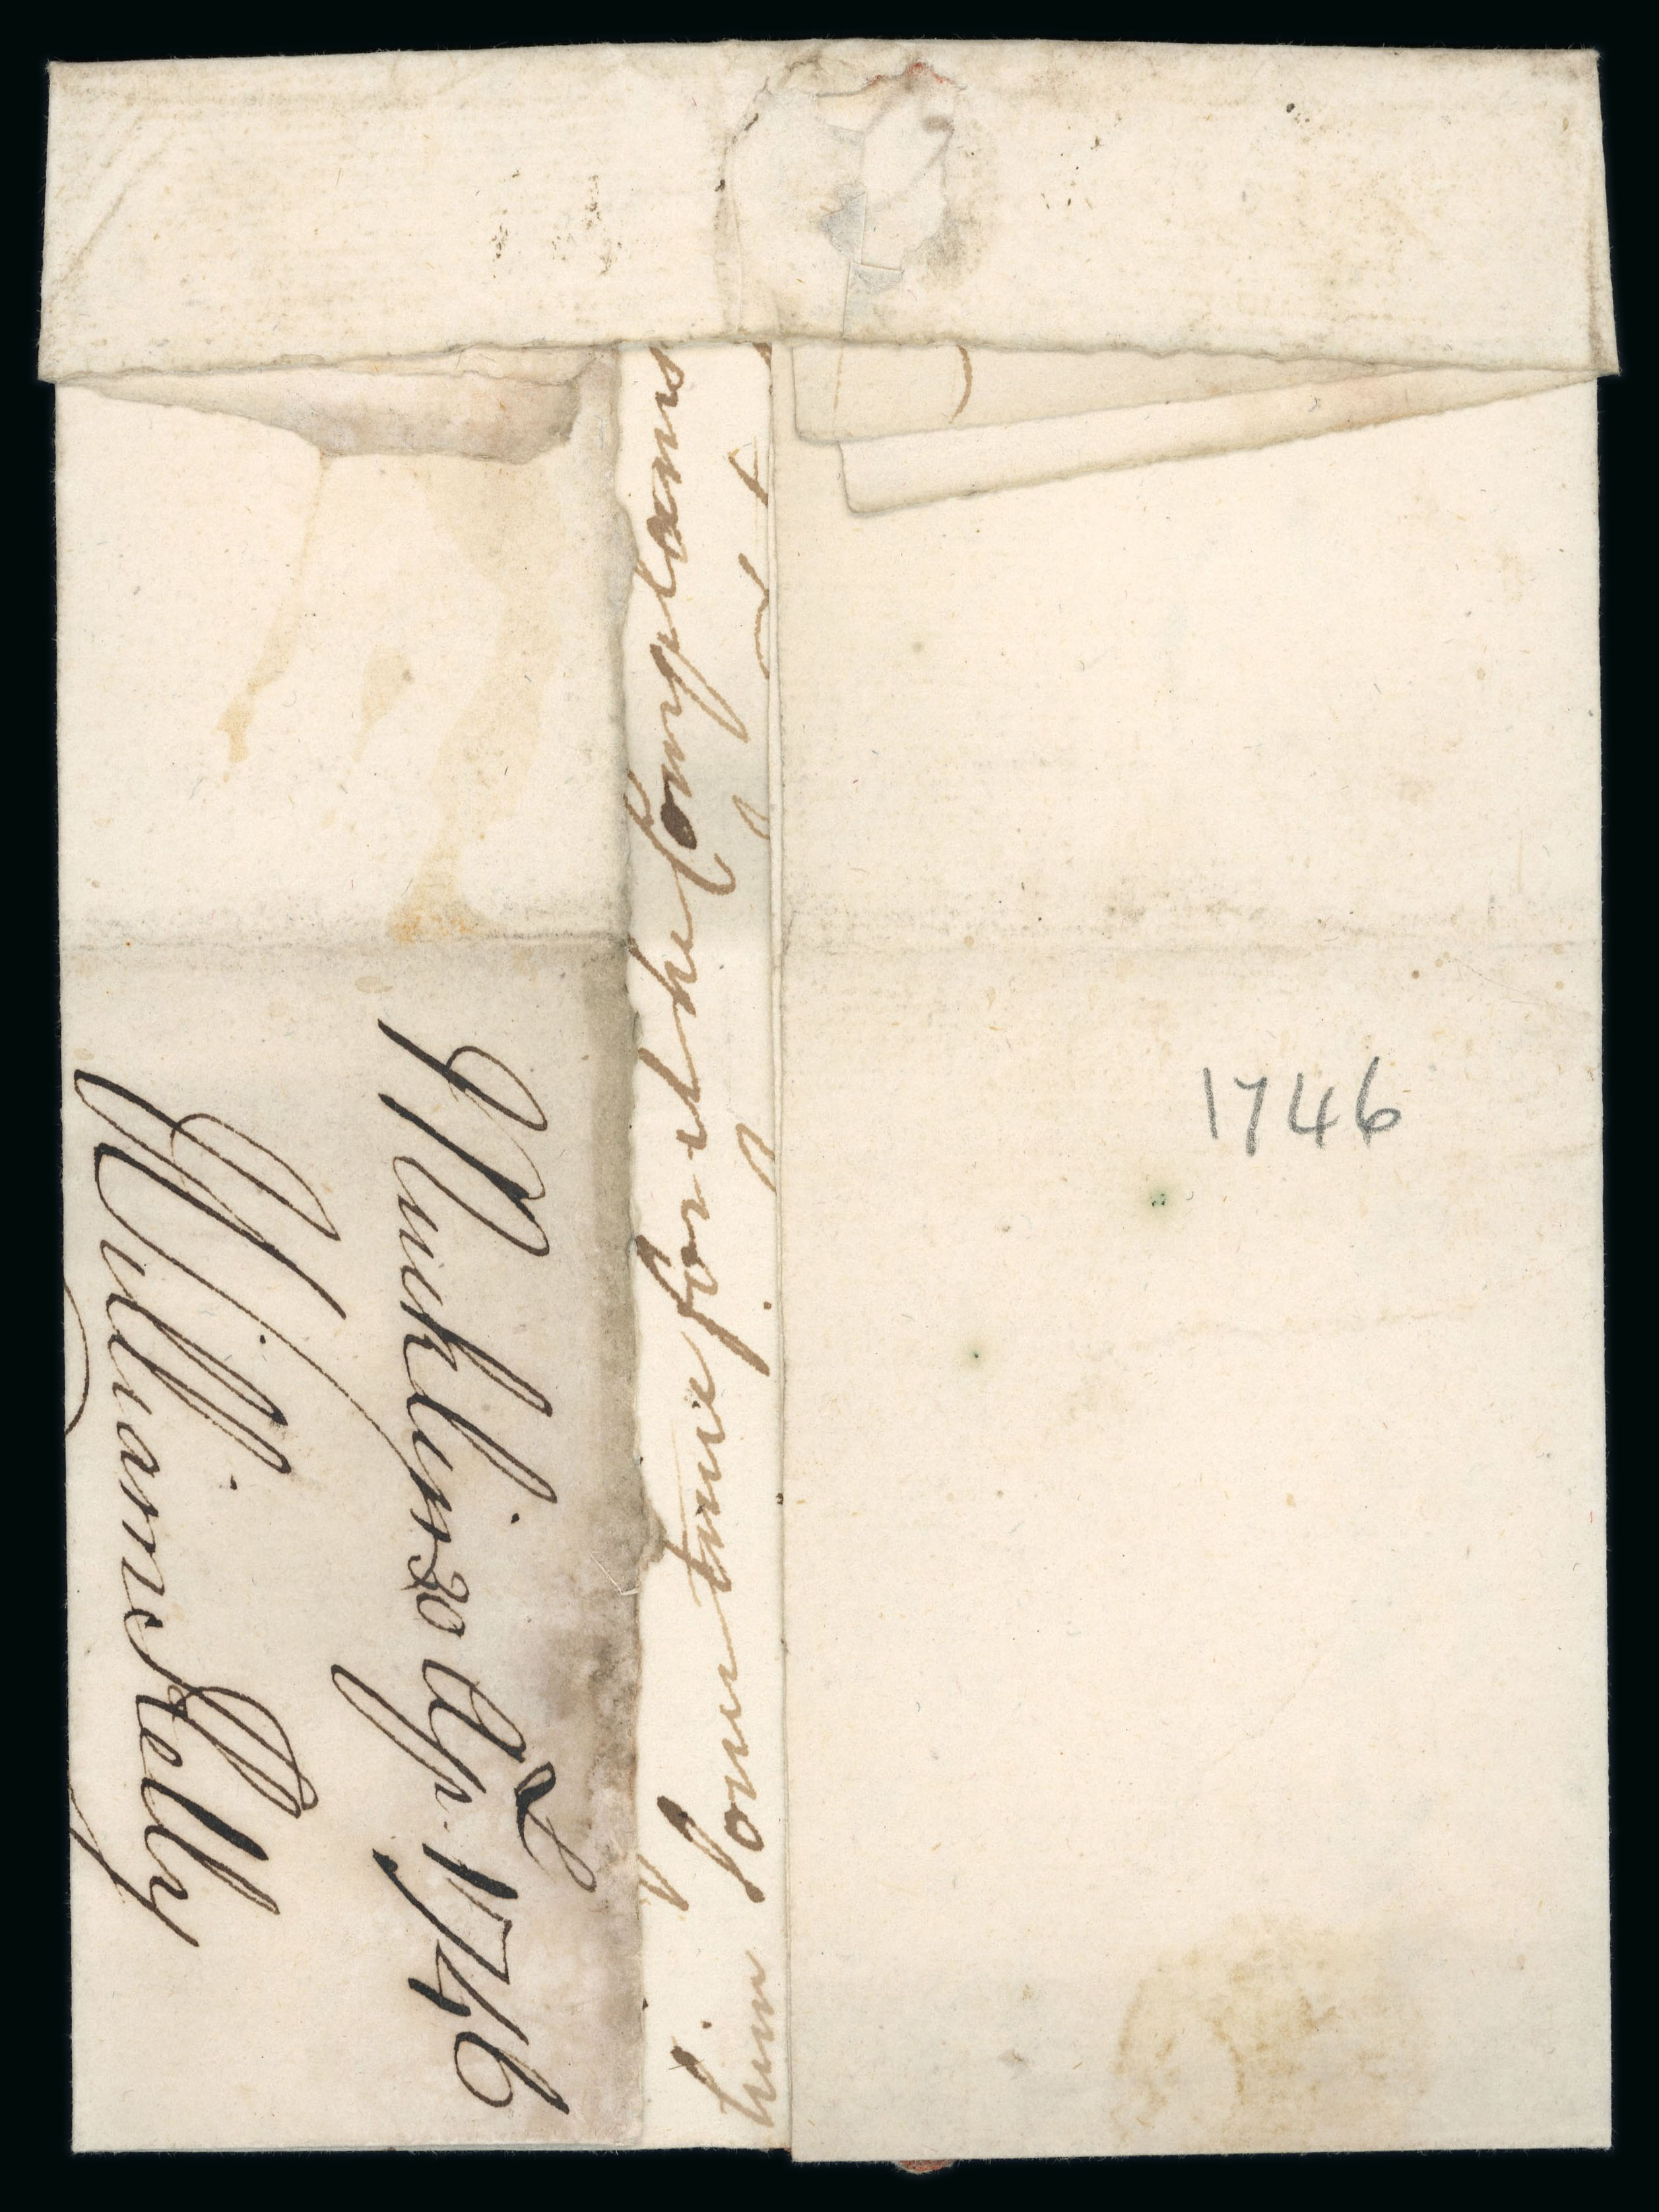 Mechlin 20 Apl 1746
William Kelly
him some time for it he Complains
1746